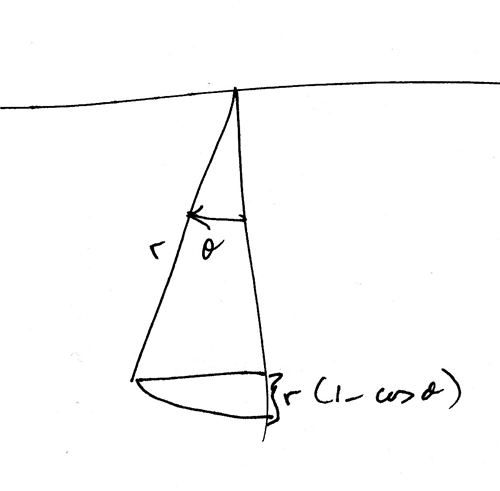 r θ
r(1-cosθ)